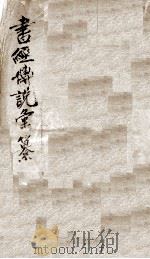 書經傳說彙纂